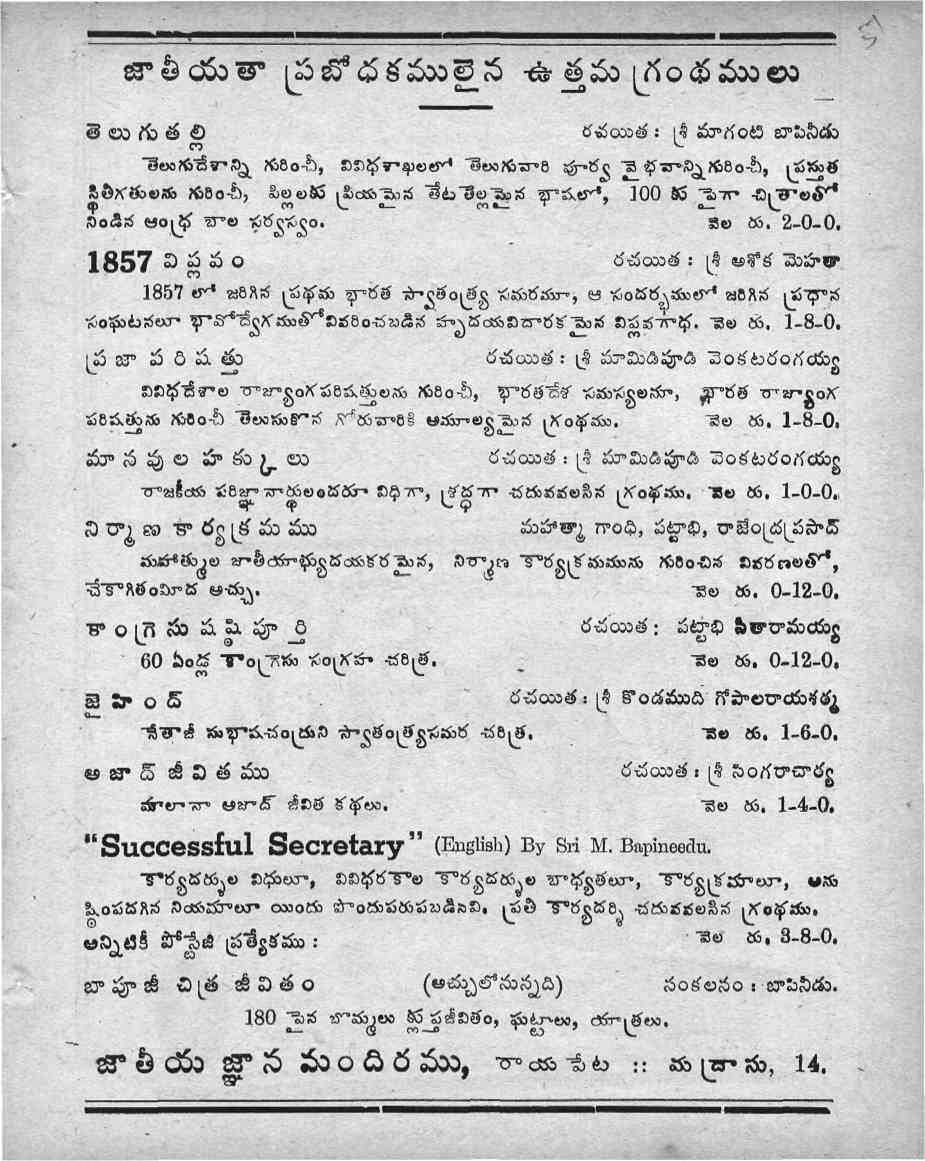 జాతీయతా ప్రబోధకములైన ఉత్తమ గ్రంథములు
తెలుగుతల్లి రచయిత : శ్రీ మాగంటి బాపినీడు
తెలుగుదేశాన్ని గురించీ, వివిధశాఖలలో తెలుగువారి పూర్వ వైభవాన్నిగురించీ, ప్రస్తుత
స్థితిగతులను గురించీ, పిల్లలకు ప్రియమైన తేటతెల్లమైన భాషలో, 100 కు పైగా చిత్రాలతో
నిండిన ఆంధ్ర బాల సర్వస్వం. వెల రు. 2-0-0.
1857 విప్లవం రచయిత : శ్రీ అశోక మెహతా
1857 లో జరిగిన ప్రథమ భారత స్వాతంత్ర్య సమరమూ, ఆ సందర్భములో జరిగిన ప్రధాన
సంఘటనలూ భావోద్వేగముతోవివరించబడిన హృదయవిదారకమైన విప్లవగాధ. వెల రు. 1-8-0.
ప్రజా పరిషత్తు రచయిత : శ్రీ మామిడిపూడి వెంకటరంగయ్య
వివిధదేశాల రాజ్యాంగపరిషత్తులను గురించీ, భారతదేశ సమస్యలనూ, భారత రాజ్యాంగ
పరిషత్తును గురించీ తెలుసుకొన గోరువారికి అమూల్యమైన గ్రంథము. వెల రు. 1-8-0.
మానవుల హక్కులు రచయిత : శ్రీ మామిడిపూడి వెంకటరంగయ్య
రాజకీయ పరిజ్ఞానార్థులందరూ విధిగా, శ్రద్ధగా చదువవలసిన గ్రంథము. వెల రు. 1-0-0.
నిర్మాణ కార్యక్రమము మహాత్మా గాంధి, పట్టాభి, రాజేంద్రప్రసాద్
మహాత్ముల జాతీయాభ్యుదయకరమైన, నిర్మాణ కార్యక్రమమును గురించిన వివరణలతో,
చేకాగితంమీద అచ్చు. వెల రు. 0-12-0.
కాంగ్రెసు షష్ఠిపూర్తి రచయిత : పట్టాభి సీతారామయ్య
60 ఏండ్ల కాంగ్రెసు సంగ్రహ చరిత్ర. వెల రు. 0-12-0.
జైహింద్ రచయిత : శ్రీ కొండముది గోపాలరాయశర్మ
నేతాజీ సుభాషచంద్రుని స్వాతంత్ర్యసమర చరిత్ర. వెల రు. 1-6-0.
అజాద్ జీవితము రచయిత : శ్రీ సింగరాచార్య
మౌలానా అబాద్ జీవిత కథలు. వెల రు. 1-4-0.
"Successful Secretary" (English) By Sri M. Bapineedu.
కార్యదర్శుల విధులూ, వివిధరకాల కార్యదర్శుల బాధ్యతలూ, కార్యక్రమాలూ, అను
ష్ఠింపదగిన నియమాలూ యిందు పొందుపరుపబడినవి. ప్రతి కార్యదర్శి చదువవలసిన గ్రంథము.
అన్నిటికీ పోస్టేజి ప్రత్యేకము : వెల రు. 3-8-0.
బాపూజీ చిత్ర జీవితం (అచ్చులోనున్నది) సంకలనం : బాపినీడు.
180 పైన బొమ్మలు క్లుప్తజీవితం, ఘట్టాలు, యాత్రలు.
జాతీయ జ్ఞాన మందిరము, రాయపేట :: మద్రాసు, 14.